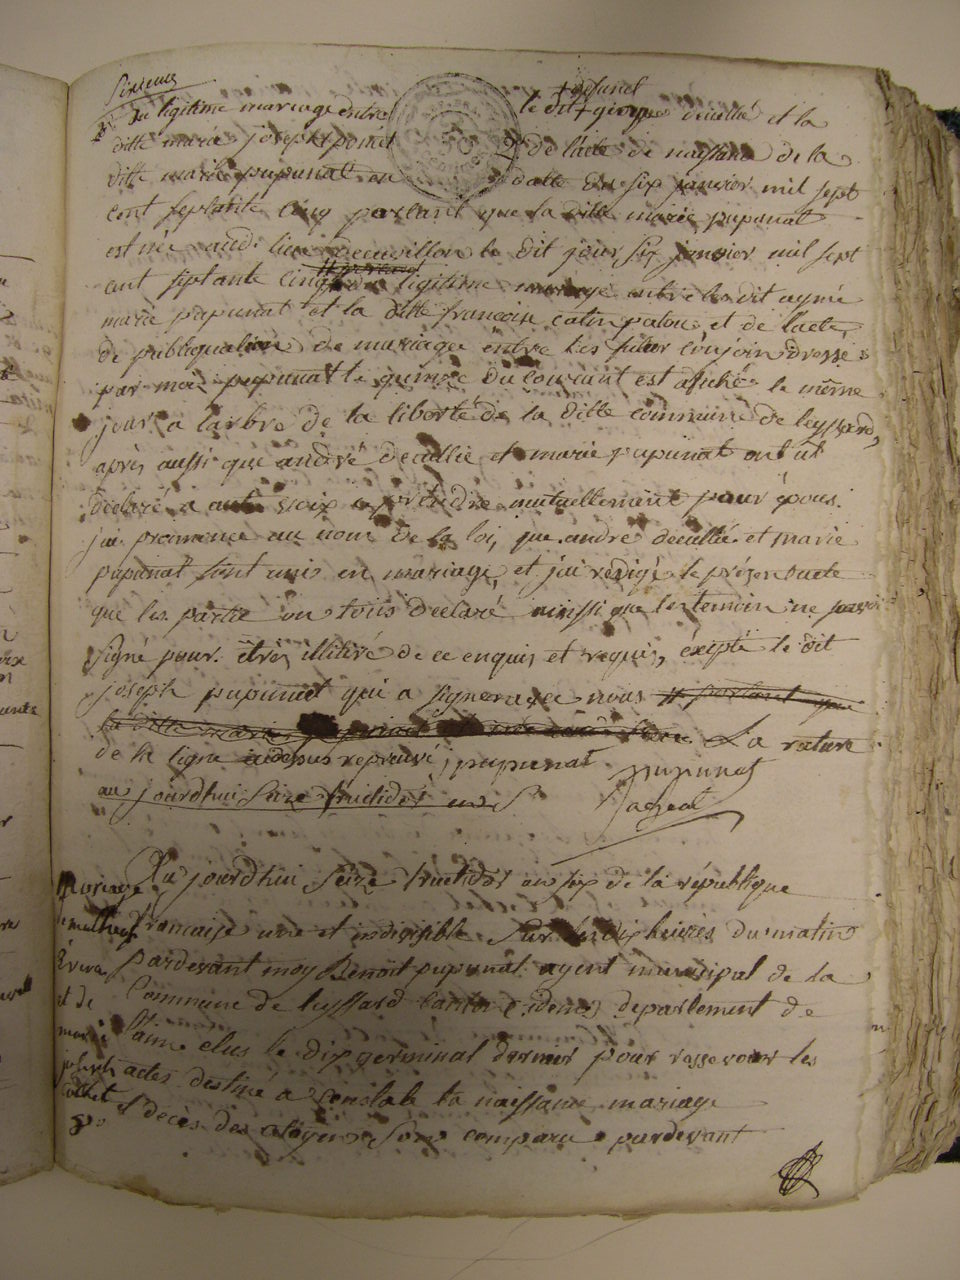 Sixieme
+ defunct
du legitime mariage entre le dit + george decullié et la
ditte marie josephte poncet 2° de lacte de naissance de la
ditte marie pupunat en datte du six janvier mil sept
cent septante cinq portant que la ditte marie pupunat
est née audi lieu le dit jour six janvier mil sept
cent septante cinq du legitime mariage entre le dit aymé
marie pupunat et la ditte francoise catin palou et de lacte
de publiquation de mariage entre les futur conjoin dressé
par moi pupunat le quinze du courant est afiché le même
jour a larbre de la liberté de la ditte commune de leyssard,
après aussi que andré decullié et marie pupunat ont ut
declaré a aute voix se prendre mutuellement pour épous
jai prononcé au nom de la loi, que andré decullié et marie
pupunat sont unis en mariage, et jai rédigé le présent acte
que les partie on tous declaré ainssi que les temoin ne savoir
signé pour être illitéré de ce enquis et requis, exepté le dit
joseph pupunat qui a signé avec nous # portant que
la ditte marie pupunat est née La rature
de la ligne audesus reprouvé, pupunat pupunat
au jourdhui seize fructidor an 6
Au jourdhui seize fructidor an six de la république
francaise une et indivisible sur les dix heures du matin
pardevant moy Benoit pupunat agent municipal de la
Commune de leyssard canton (idem) departement de
laine elus le dix germinal dernier pour ressevoir les
actes destiné a constaté la naissance mariage
et deces des citoyens sont comparu pardevant
Mariage
de mathieu
et de
marie
joseph
Cochet